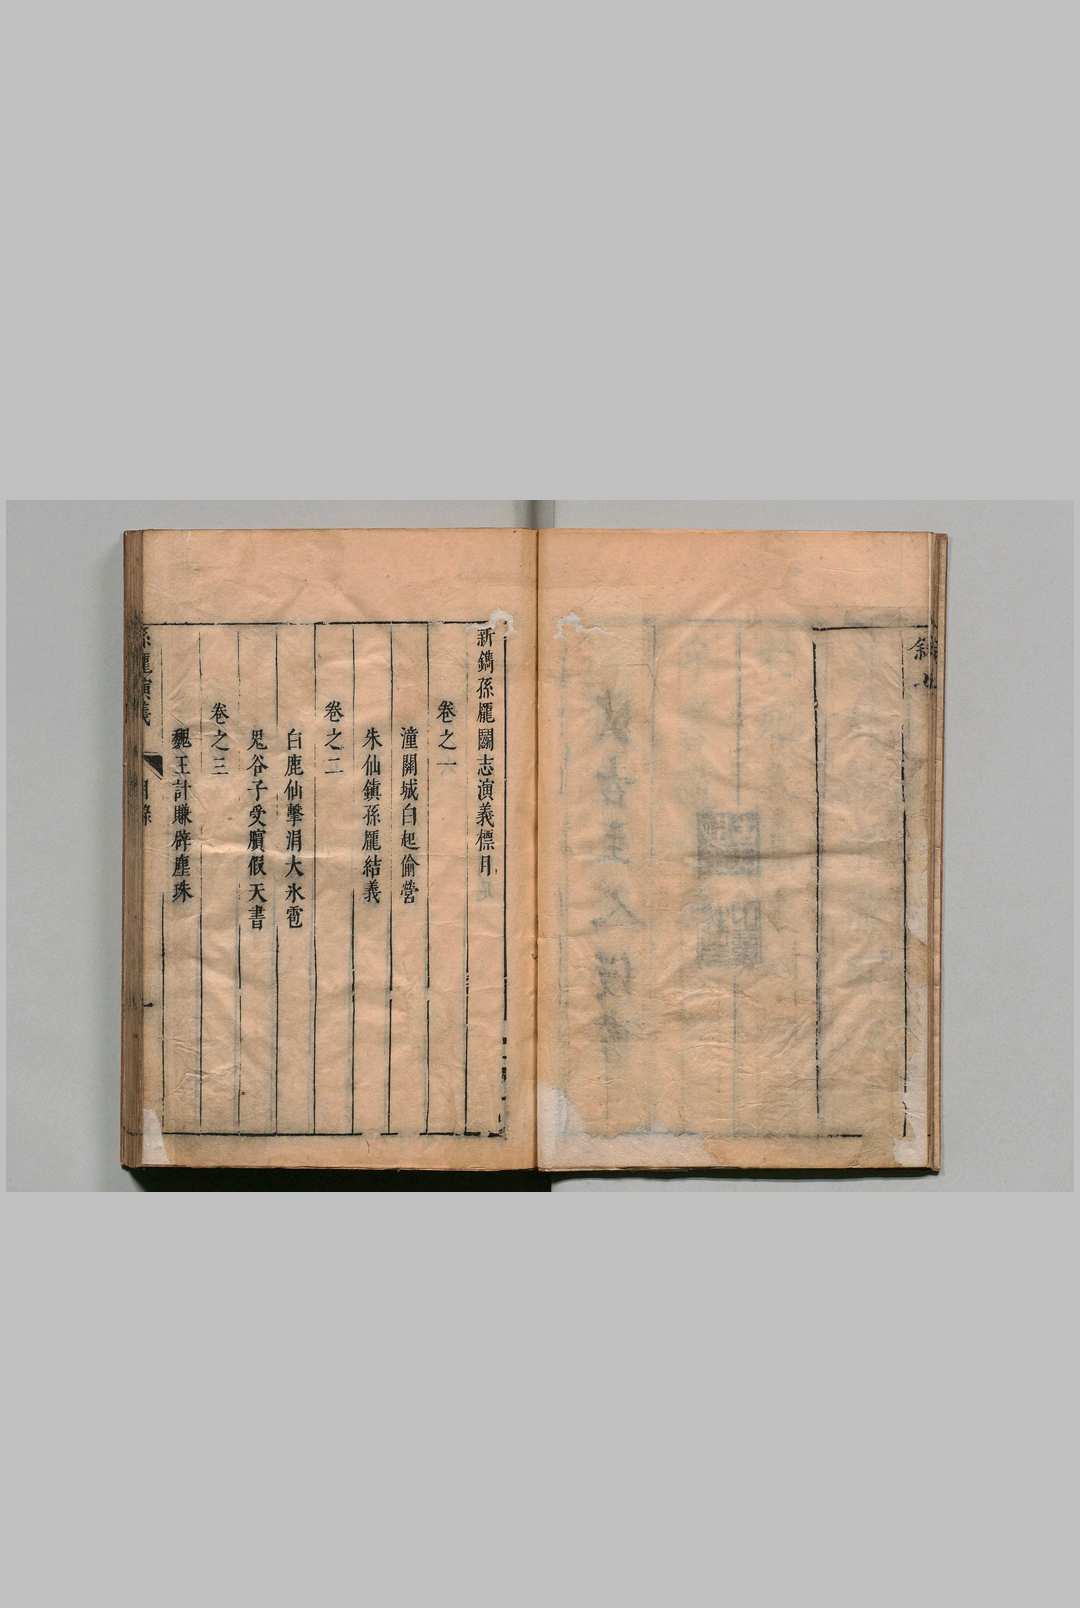 新鐫孫龐鬬志演義標目
卷之一
潼關城白起偷營
朱仙鎮孫龐結義
卷之二
白鹿仙擊涓大氷雹
鬼谷子受臏假天書
卷之三
魏王計賺辟塵珠
孫龐演義
目錄
一